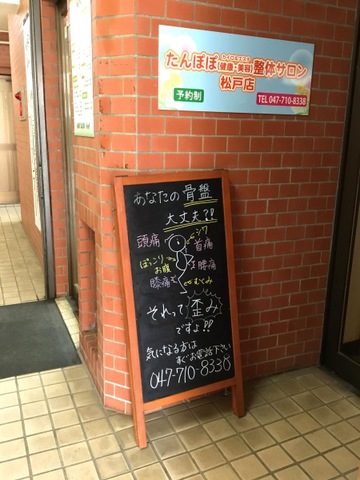 たんぽぽ(健康・美容)整体サロン
松戸店
予約制
TEL 047-710-8338
あなたの骨盤
大丈夫??
シワ
頭痛
首痛
ぽっこりお腹
腰痛
膝痛
むくみ
それって歪み
ですよ!?
気になる方は
すぐお電話下さい
047-710-8338